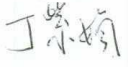 丁紫娟